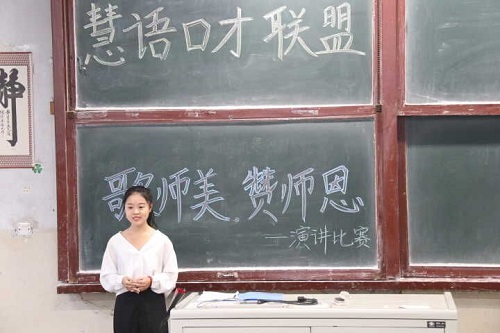 慧语口才联盟
歌师美 赞师恩
—演讲比赛
静